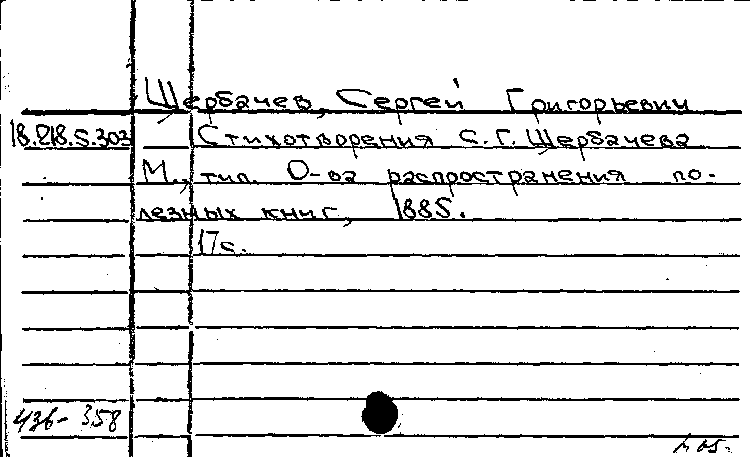 Щербачев, Сергей Григорьевич
18.218.5.303 Стихотворения С.Г. Щербачева
М., тип. О-ва распространения по-
лезных книг, 1885.
17с.
436-358